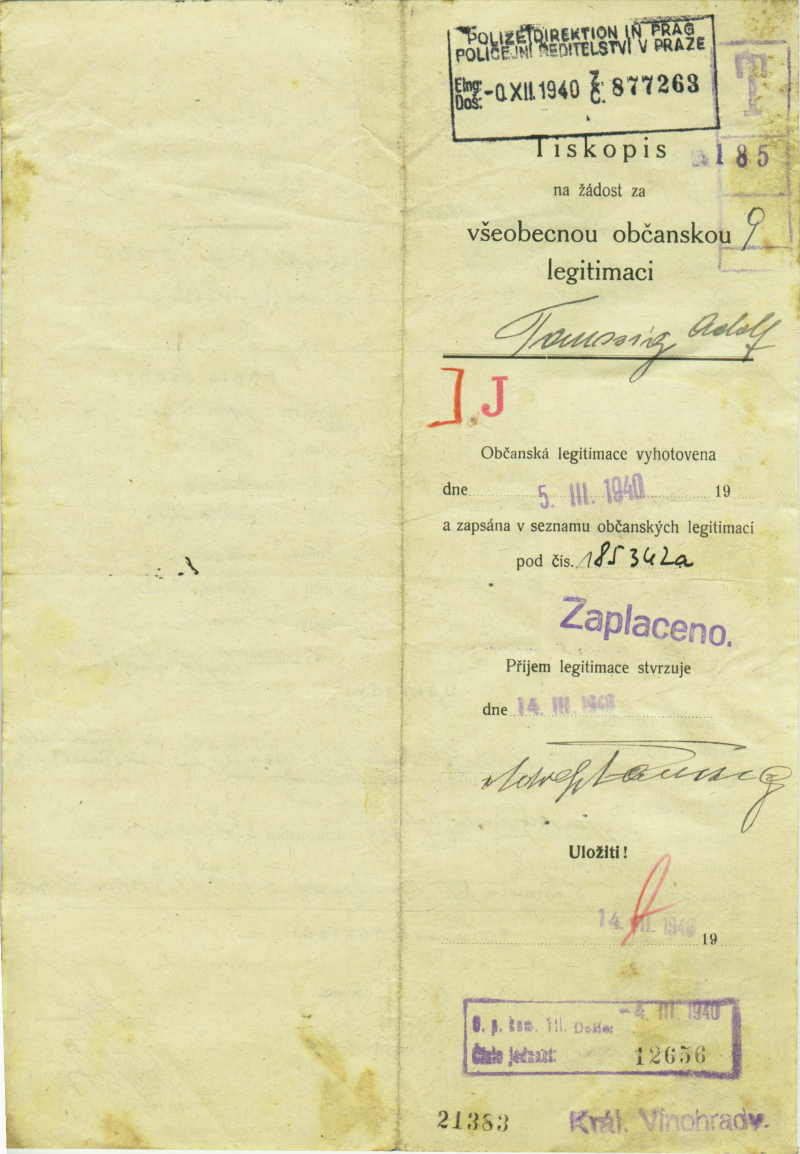 POLIZEIDIREKTION IN PRAG
POLICEJNÍ ŘEDITELSTVÍ V PRAZE
Eing:
Doš: XII. 1940 Z. Č. 877263
T
Tiskopis
185
na žádost za
všeobecnou občanskou 9
legitimaci
Taussig Adolf
J
Občanská legitimace vyhotovena
dne 5. III. 1940 19
a zapsána v seznamu občanských legitimací
pod čís. 185342a
Zaplaceno.
Příjem legitimace stvrzuje
dne 14. III 1940
Adolf Taussig
Uložiti!
14. III. 1940 19
-4. III 1940
kom. VII. Došlo:
Číslo jednací: 12656
21383 Král. Vinohrady.